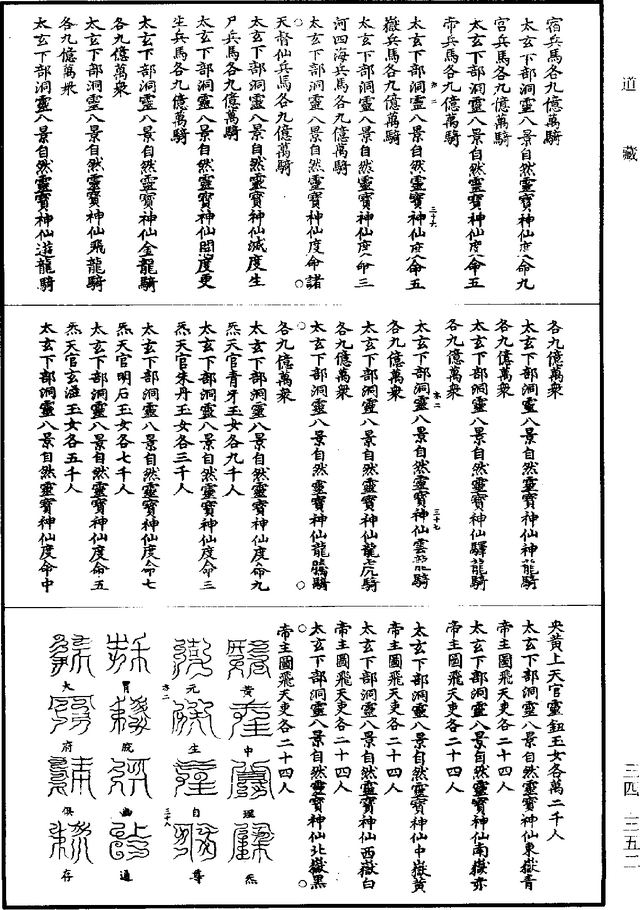 道藏
宿兵馬各九億萬騎
太玄下部洞靈八景自然靈寶神仙度命九
宮兵馬各九億萬騎
太玄下部洞靈八景自然靈寶神仙度命五
帝兵馬各九億萬騎
太玄下部洞靈八景自然靈寶神仙度命五
嶽兵馬各九億萬騎
太玄下部洞靈八景自然靈寶神仙度命三
河四海兵馬各九億萬騎
太玄下部洞靈八景自然靈寶神仙度命諸
天督仙兵馬各九億萬騎
太玄下部洞靈八景自然靈寶神仙滅度生
尸兵馬各九億萬騎
太玄下部洞靈八景自然靈寶神仙開度更
生兵馬各九億萬騎
太玄下部洞靈八景自然靈寶神仙金龍騎
各九億萬衆
太玄下部洞靈八景自然靈寶神仙飛龍騎
各九億萬衆
太玄下部洞靈八景自然靈寶神仙遊龍騎
三十六
各九億萬衆
太玄下部洞靈八景自然靈寶神仙神龍騎
各九億萬衆
太玄下部洞靈八景自然靈寶神仙驛龍騎
各九億萬衆
太玄下部洞靈八景自然靈寶神仙雲龍騎
各九億萬衆
太玄下部洞靈八景自然靈寶神仙龍虎騎
各九億萬衆
太玄下部洞靈八景自然靈寶神仙龍騰騎
各九億萬衆
太玄下部洞靈八景自然靈寶神仙度命九
炁天官青牙玉女各九千人
太玄下部洞靈八景自然靈寶神仙度命三
炁天官朱丹玉女各三千人
太玄下部洞靈八景自然靈寶神仙度命七
炁天官明石玉女各七千人
太玄下部洞靈八景自然靈寶神仙度命五
炁天官玄滋玉女各五千人
太玄下部洞靈八景自然靈寶神仙度命中
三十七
央黃上天官靈鈕玉女各萬二千人
太玄下部洞靈八景自然靈寶神仙東嶽青
帝主圖飛天吏各二十四人
太玄下部洞靈八景自然靈寶神仙南嶽赤
帝主圖飛天吏各二十四人
太玄下部洞靈八景自然靈寶神仙中嶽黃
帝主圖飛天吏各二十四人
太玄下部洞靈八景自然靈寶神仙西嶽白
帝主圖飛天吏各二十四人
太玄下部洞靈八景自然靈寶神仙北嶽黑
帝主圖飛天吏各二十四人
黃中理炁
元生自尊
三十八
胃成幽通
大府俱存
三四 三五二